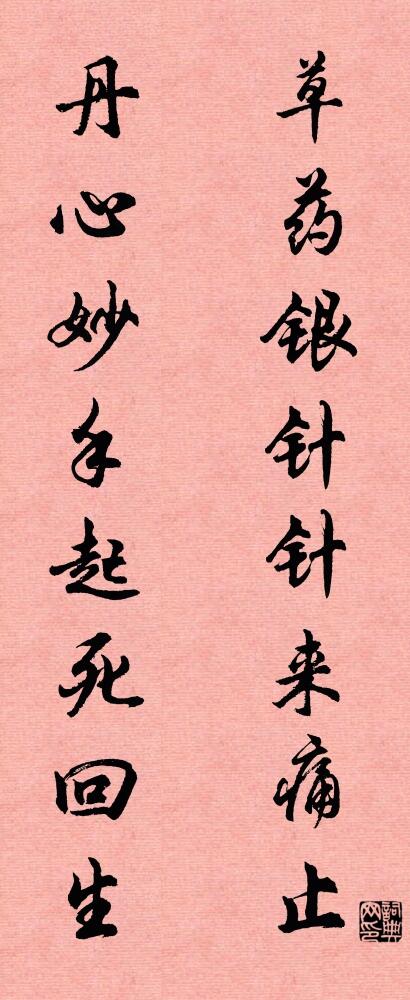 草药银针针来痛止
丹心妙手起死回生
词典网印